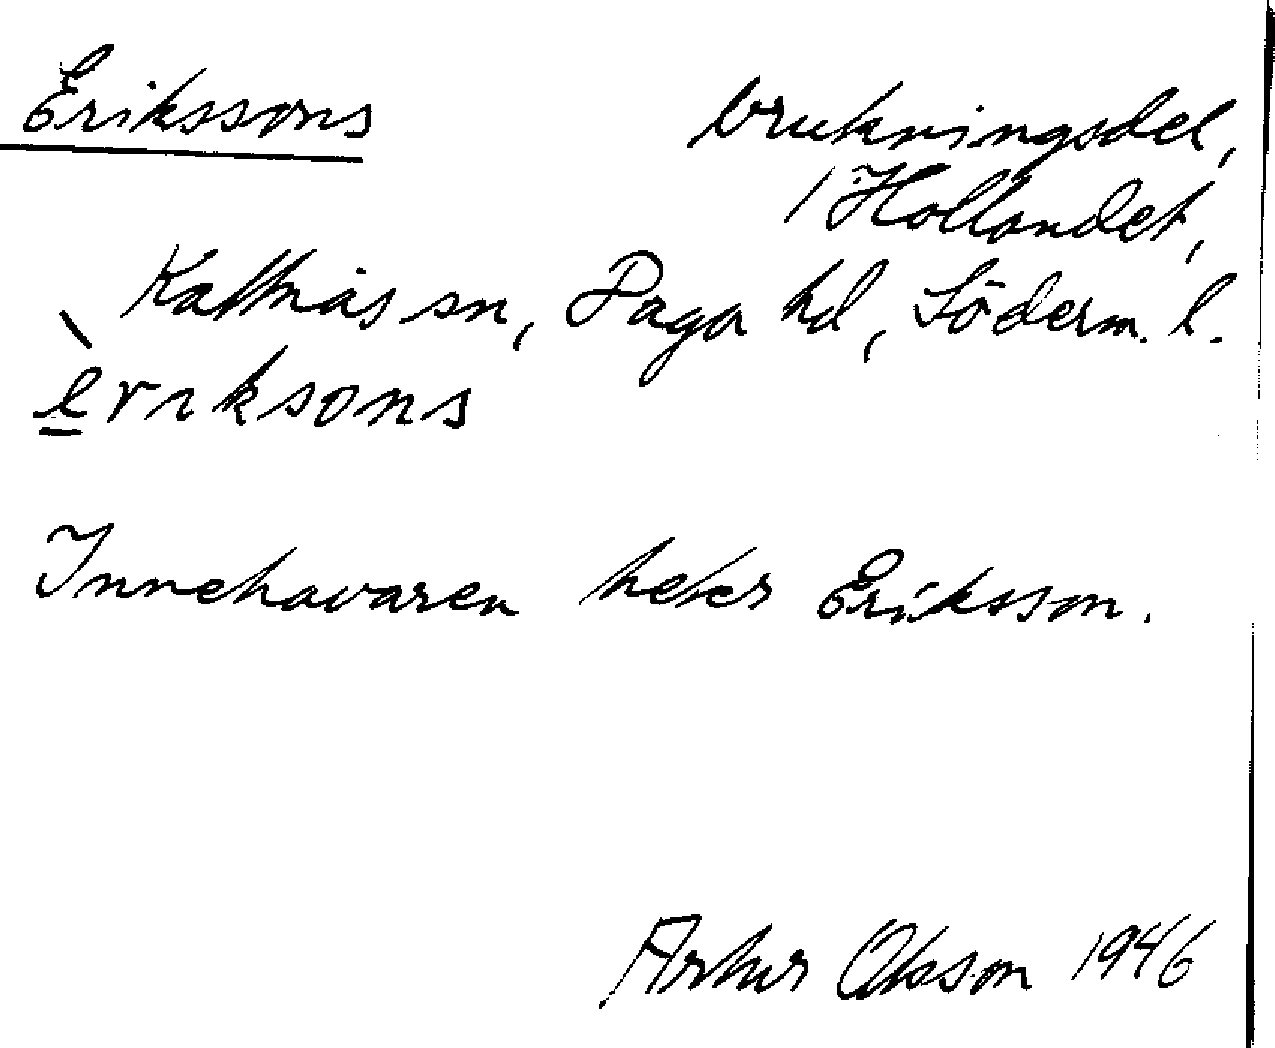 Erikssons
brukningsdel,
i Hollandet,
Kattnäs sn, Daga hd, Söderm. l.
èriksons
Innehavaren heter Eriksson.
Arthur Olsson 1946